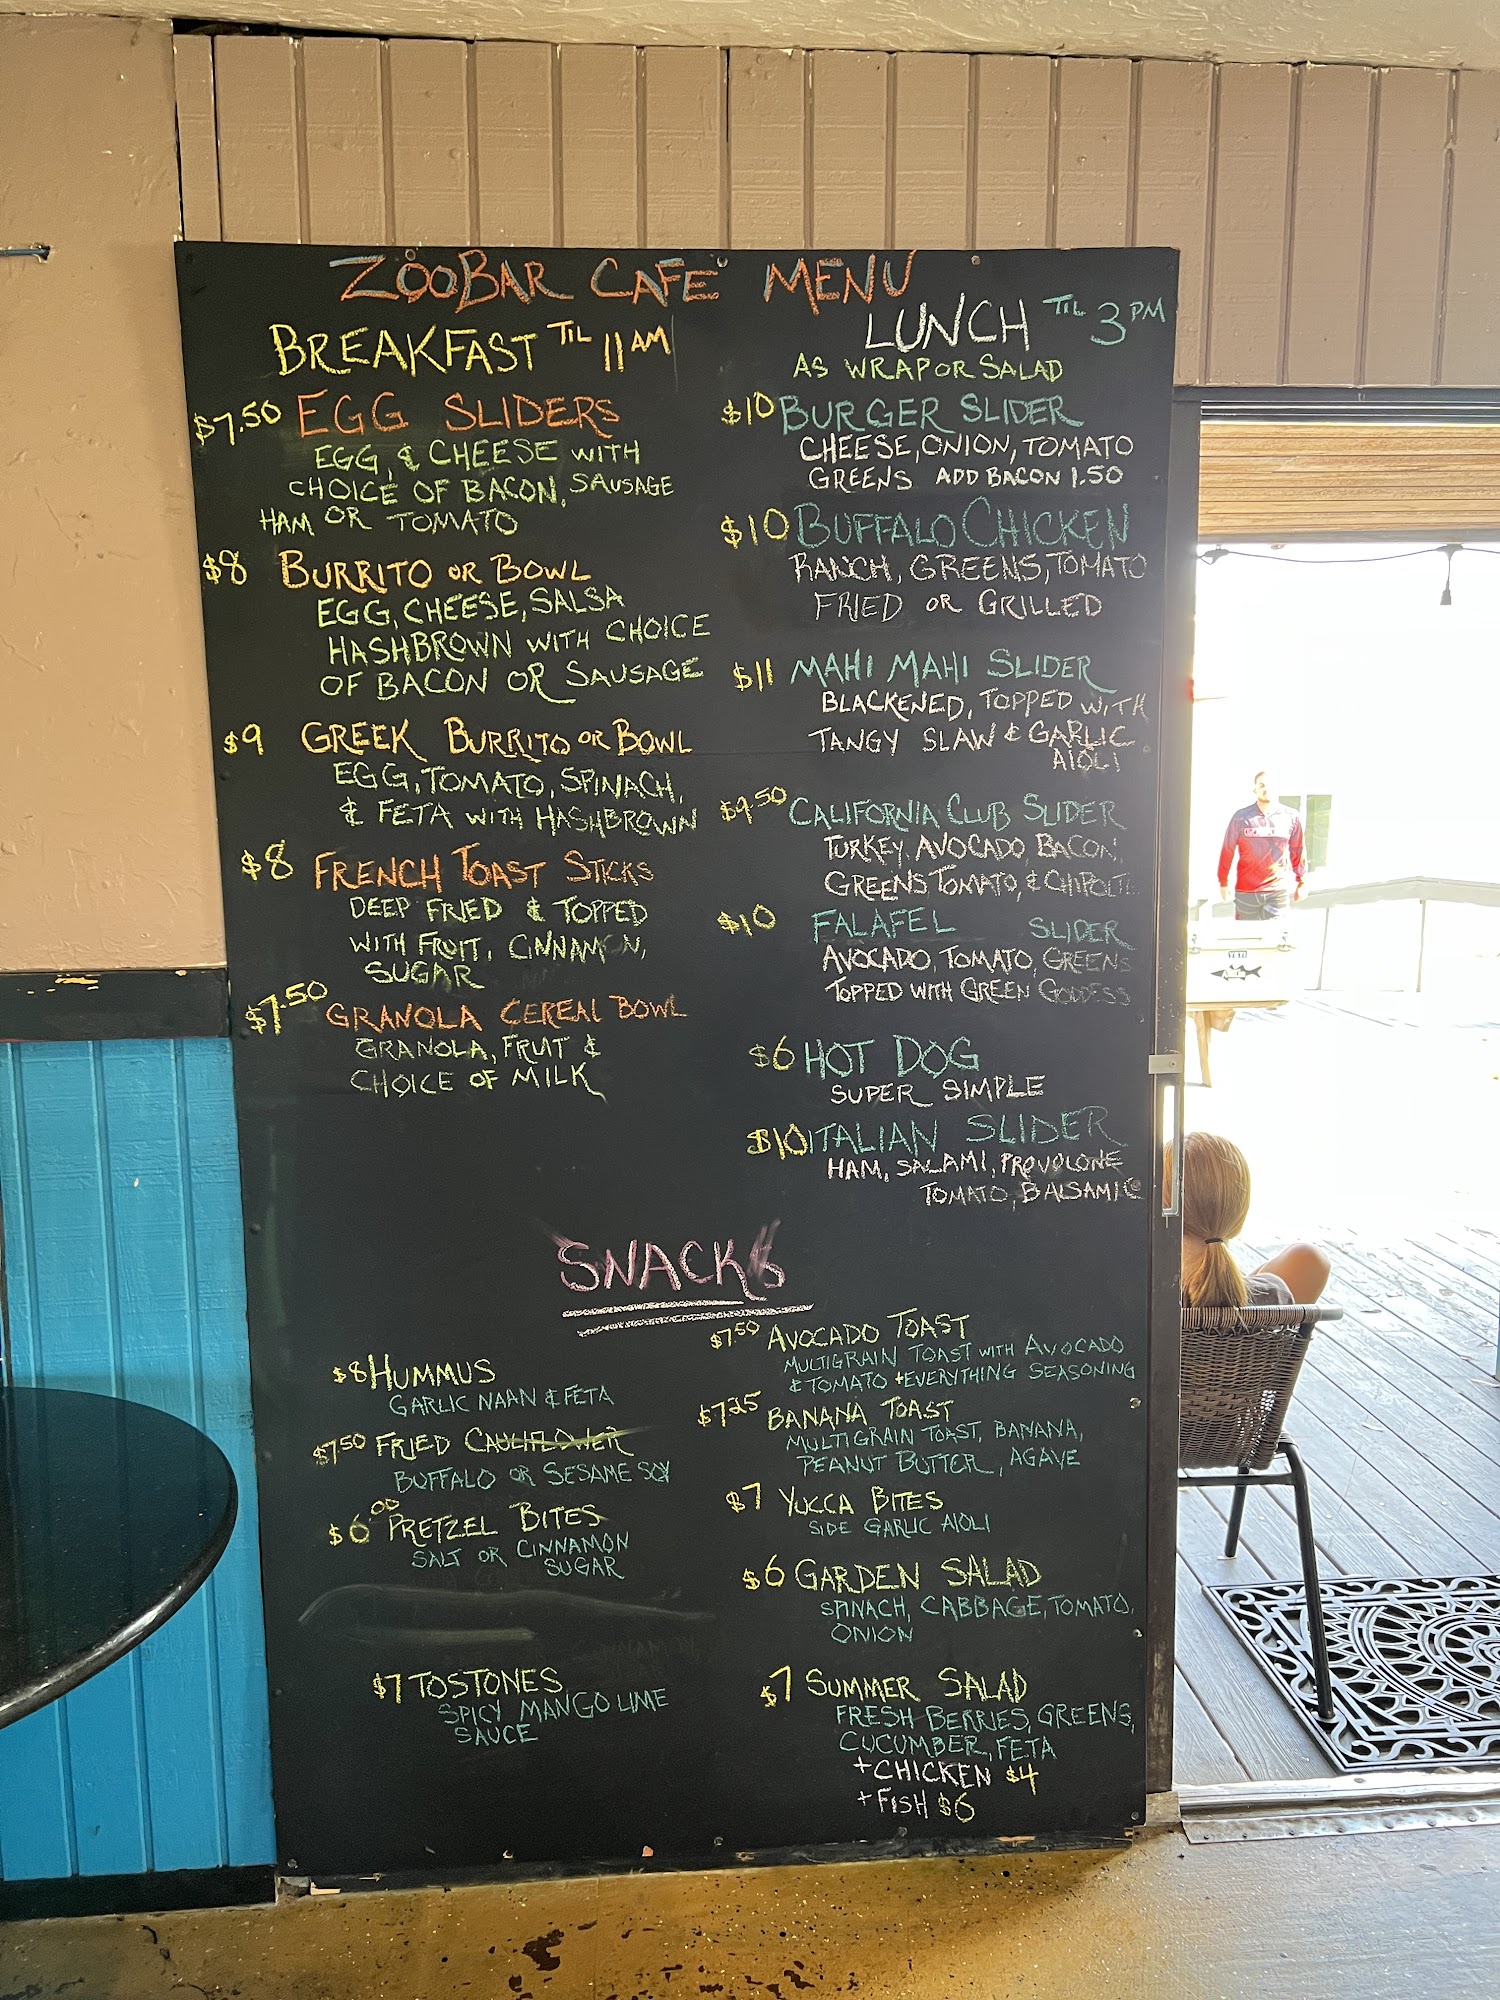 ZOOBAR CAFE MENU
BREAKFAST TIL 11 AM
$7.50 EGG SLIDERS
EGG, & CHEESE WITH
CHOICE OF BACON, SAUSAGE
HAM OR TOMATO
$8 BURRITO OR BOWL
EGG, CHEESE, SALSA
HASHBROWN WITH CHOICE
OF BACON OR SAUSAGE
$9 GREEK BURRITO OR BOWL
EGG, TOMATO, SPINACH,
& FETA WITH HASHBROWN
$8 FRENCH TOAST STICKS
DEEP FRIED & TOPPED
WITH FRUIT, CINNAMON,
SUGAR
$7.50 GRANOLA CEREAL BOWL
GRANOLA, FRUIT &
CHOICE OF MILK
LUNCH TIL 3 PM
AS WRAP OR SALAD
$10 BURGER SLIDER
CHEESE, ONION, TOMATO
GREENS ADD BACON 1.50
$10 BUFFALO CHICKEN
RANCH, GREENS, TOMATO
FRIED OR GRILLED
$11 MAHI MAHI SLIDER
BLACKENED, TOPPED WITH
TANGY SLAW & GARLIC
AIOLI
$9.50 CALIFORNIA CLUB SLIDER
TURKEY, AVOCADO, BACON,
GREENS TOMATO, &
$10 FALAFEL SLIDER
AVOCADO, TOMATO, GREENS
TOPPED WITH GREEN GODDESS
$6 HOT DOG
SUPER SIMPLE
$10 ITALIAN SLIDER
HAM, SALAMI, PROVOLONE
TOMATO, BALSAMIC
SNACKS
$8 HUMMUS
GARLIC NAAN & FETA
$7.50 FRIED CAULIFLOWER
BUFFALO OR SESAME SOY
$6.00 PRETZEL BITES
SALT OR CINNAMON
SUGAR
CINNAMON
$7 TOSTONES
SPICY MANGO LIME
SAUCE
$7.50 AVOCADO TOAST
MULTIGRAIN TOAST WITH AVOCADO
& TOMATO + EVERYTHING SEASONING
$7.25 BANANA TOAST
MULTIGRAIN TOAST, BANANA,
PEANUT BUTTER, AGAVE
$7 YUCCA BITES
SIDE GARLIC AIOLI
$6 GARDEN SALAD
SPINACH, CABBAGE, TOMATO,
ONION
$7 SUMMER SALAD
FRESH BERRIES, GREENS,
CUCUMBER, FETA
+ CHICKEN $4
+ FISH $6
YETI